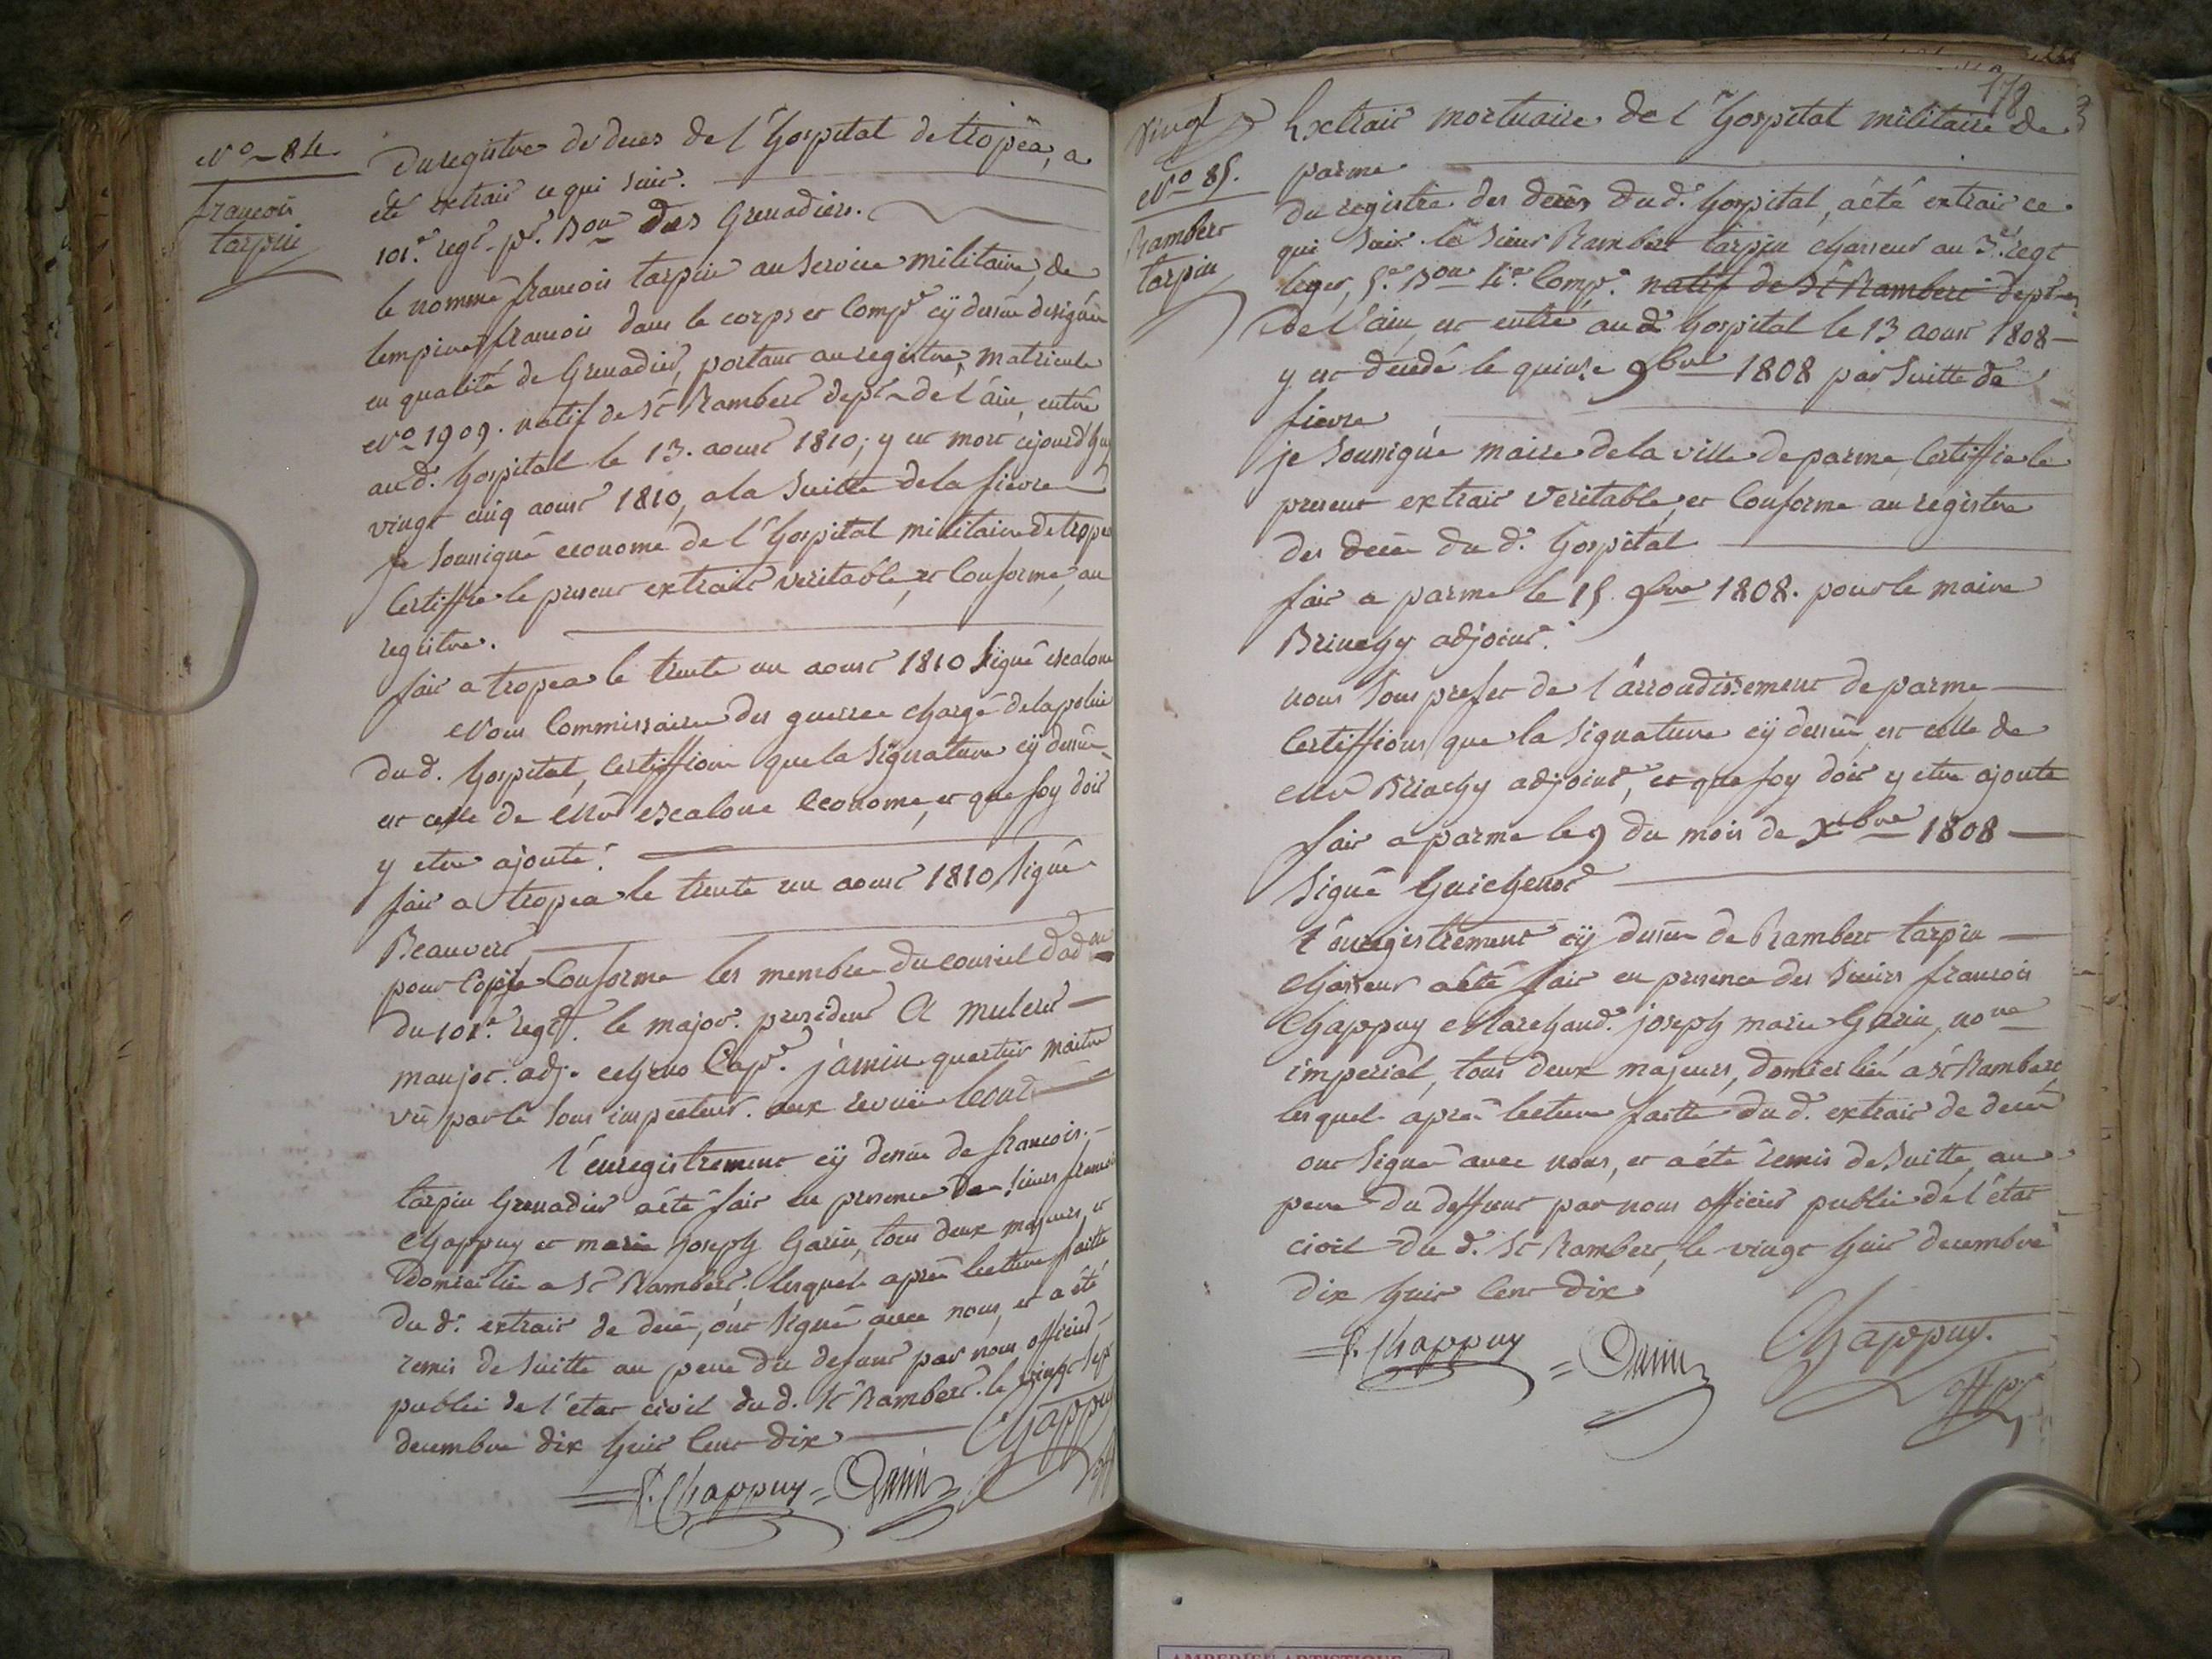 N° 84
françois
tarpin
du registre de deces de l'hospital de tropea, a
été extrait ce qui suit.
101.e regt. pr. Bon des Grenadiers.
le nommé françois tarpin au service militaire, de
l'empire françois dans le corps et Comp.e cy dessus designée
en qualité de Grenadier, portant au registre matricule
N° 1909. natif de St Rambert dept de l'ain, entré
aud. hospital le 13. aoust 1810; y est mort cejourd'huy
vingt cinq aoust 1810, a la suitte de la fievre
je soussigné econome de l'hospital militaire de tropea
Certiffie le present extrait veritable, et Conforme, au
registre.
fait a tropea le trente un aoust 1810 signé escalone
Nous Commissaire des guerres chargé de la police
dud. hospital, Certiffions que la signature cy dessus
est celle de Mr escalone Econome, et que foy doit
y etre ajouté.
fait a tropea le trente un aoust 1810 signé
Beauvert
pour Copie Conforme les membres du conseil dadon
du 101.e regt. le major. president
major. adj. Cape. jamin quartier maitre
vû par le sous inspecteur. aux revües
l'enregistrement cy dessus de francois.
tarpin Grenadier a été fait en presence des sieurs francois
Chappuy et marie joseph Garin, tous deux majeurs, et
Domiciliés a St Rambert, lesquels aprés lecture faitte
du d. extrait de decés, ont signé avec nous, et a été
remis de suitte au pere du defunt par nous officier
public de l'état civil du d. St Rambert. le vingt sept
decembre dix huit Cent dix
Chappuy
f. Chappuy = Garin
178
vingt
N° 85.
Rambert
tarpin
Extrait mortuaire de l'hospital militaire de
parme
du registre des decès du d. hospital, a été extrait ce
qui suit. le sieur Rambert tarpin chasseur au 3.e regt
leger, 5.e Bon 4.e Comp.e natif de St Rambert dept
de l'ain, est entré aud. hospital le 13 aoust 1808
y est decédé le quinze 9bre 1808 par suitte de
fievre
je soussigné maire de la ville de parme, Certiffie le
present extrait veritable, et Conforme au registre
des decès du d. hospital
fait a parme le 15. 9bre 1808. pour le maire
adjoint.
nous sous prefet de l'arrondissement de parme
Certiffions que la signature cy dessus, est celle de
Mr adjoint, et que foy doit y etre ajouté
fait a parme le 9 du mois de Xbre 1808
signé
l'enregistrement cy dessus de Rambert tarpin
chasseur a été fait en presence des sieurs francois
Chappuy Marchand. joseph marie Garin, nore
imperial, tous deux majeurs, domiciliés a St Rambert,
lesquels aprés lecture faitte du d. extrait de decès
ont signé avec nous, et a été remis de suitte, au
pere du deffunt par nous officier public de l'état
civil du d. St Rambert, le vingt huit decembre
dix huit Cent dix
f. Chappuy = Garin Chappuy.